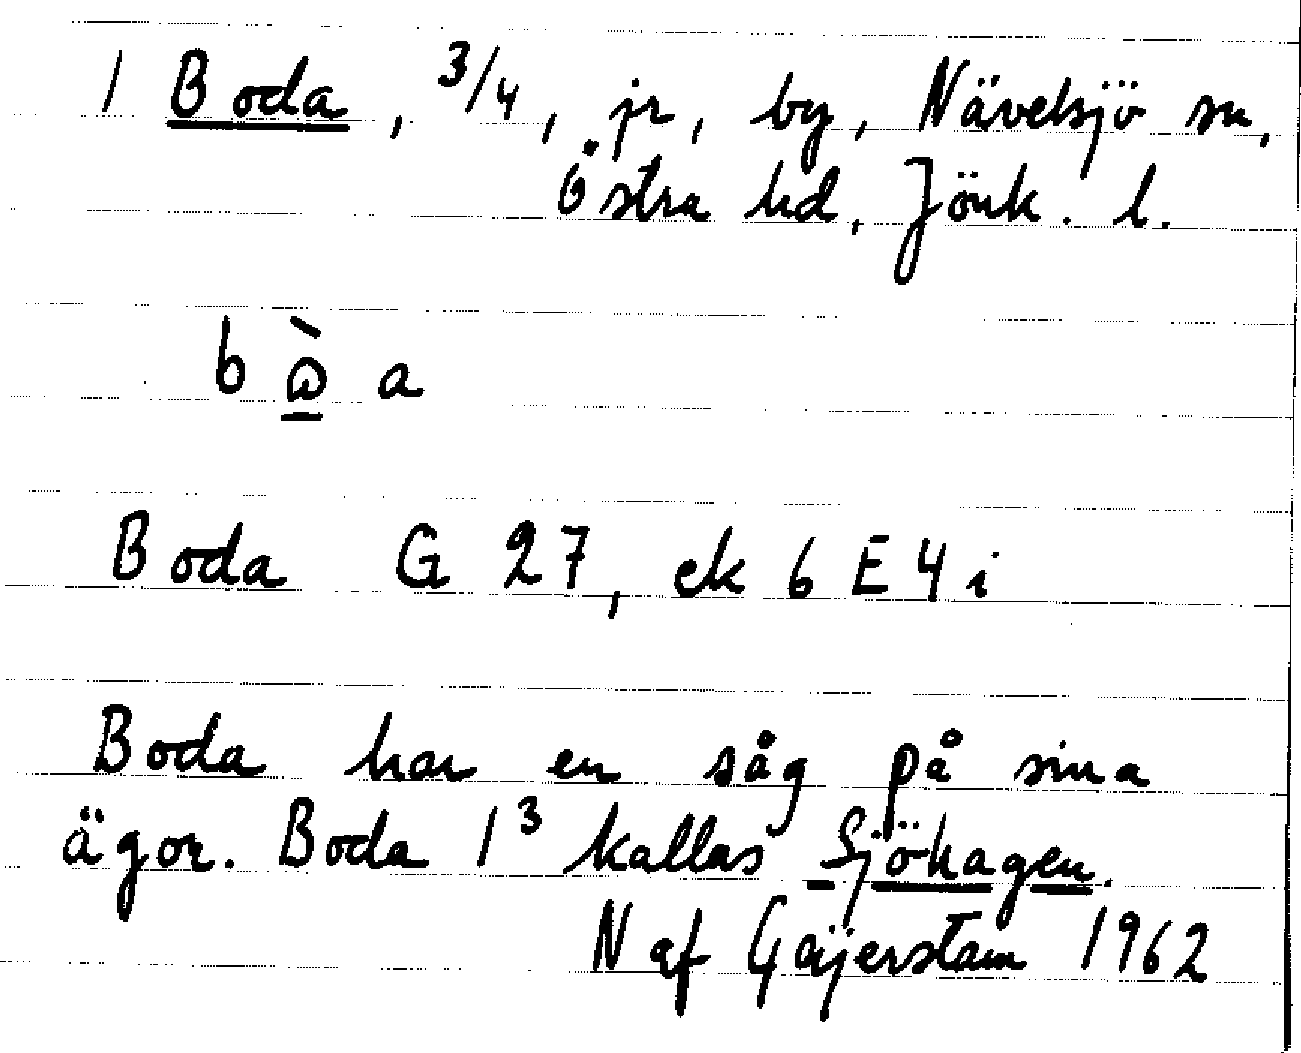 1 Boda, 3/4, jr, by, Nävelsjö sn,
Östra hd, Jönk. l.
b ὼ a
Boda G 27, ek 6 E 4 i
Boda har en såg på sina
ägor. Boda 1³ kallas Sjöhagen.
N af Gejerstam 1962